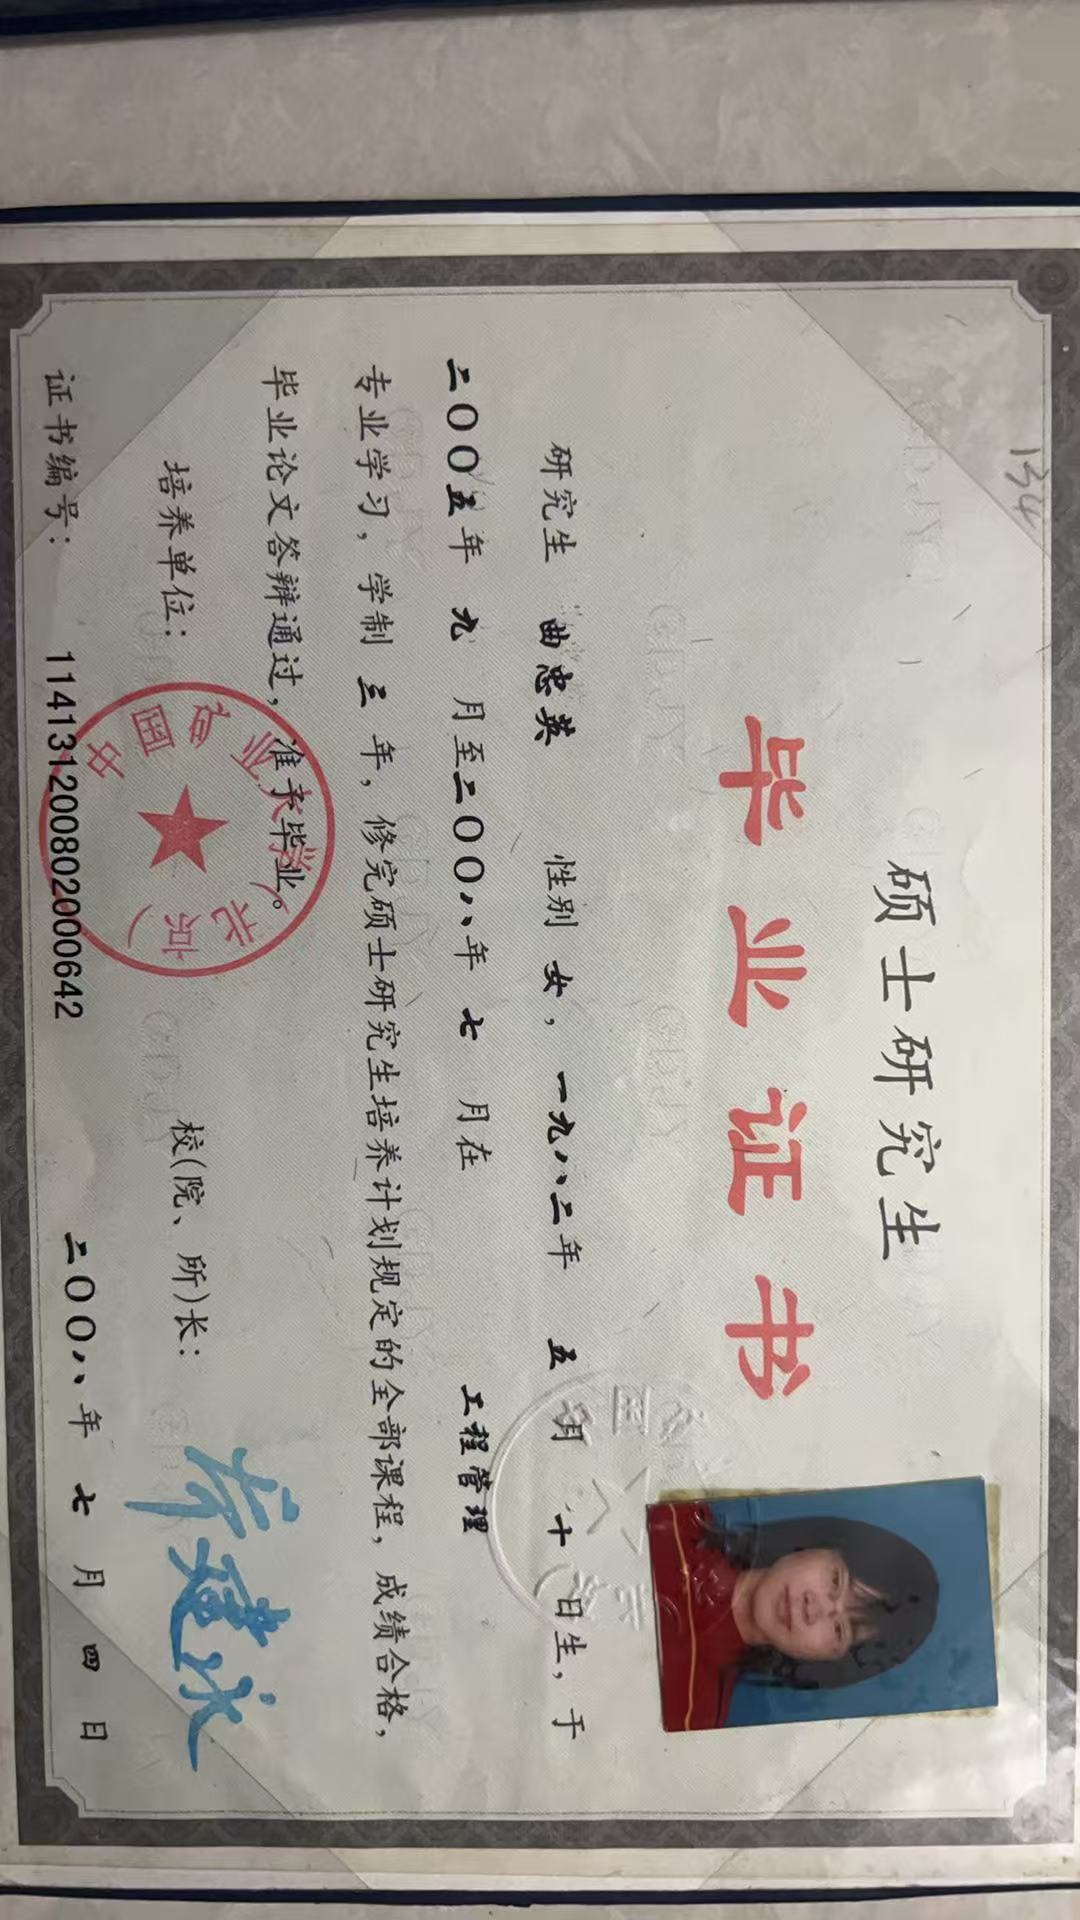 134
硕士研究生
毕业证书
研究生 曲忠英 性别 女，一九八二年 五 月 十 日生，于
二〇〇五年 九 月至二〇〇八年 七 月在 工程管理
专业学习，学制 三 年，修完硕士研究生培养计划规定的全部课程，成绩合格，
毕业论文答辩通过，准予毕业。
培养单位： 校(院、所)长：
中国矿业大学（北京）
证书编号： 114131200802000642 二〇〇八年 七 月 四 日